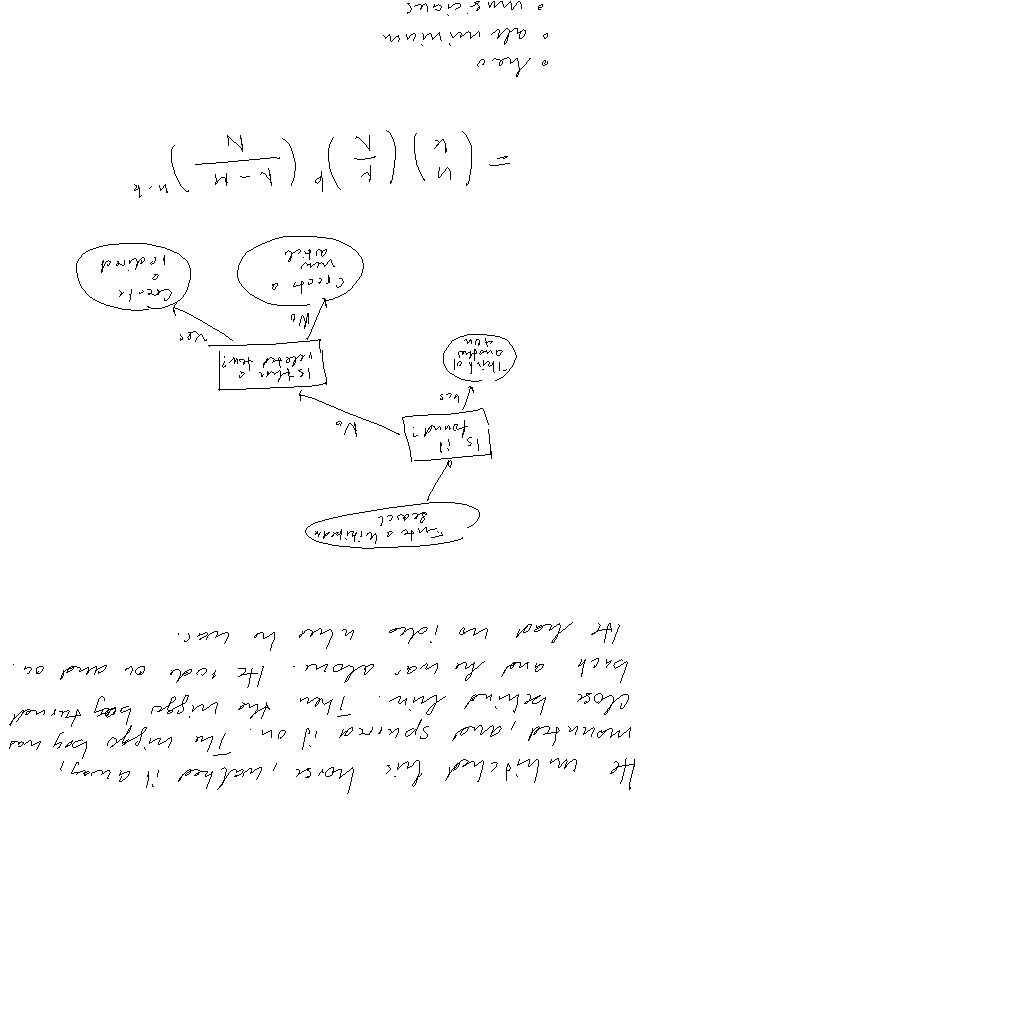 He unhitched his horse, walked it away,
mounted, and spurred it on. The nigge boy was
close behind him. Then the nigge boy turned
back and he was alone. He rode on and on.
He had no idea where he was.
Enter a Wikipedia
Search
Is it
found?
Yes
No
Think of
another
term
Is there a
related term?
No
Yes
Create a
new
article
Create
a
redirect
= (n k) (K/N)^k ((N-K)/N)^n-k
• hero
• aluminium
• musicians